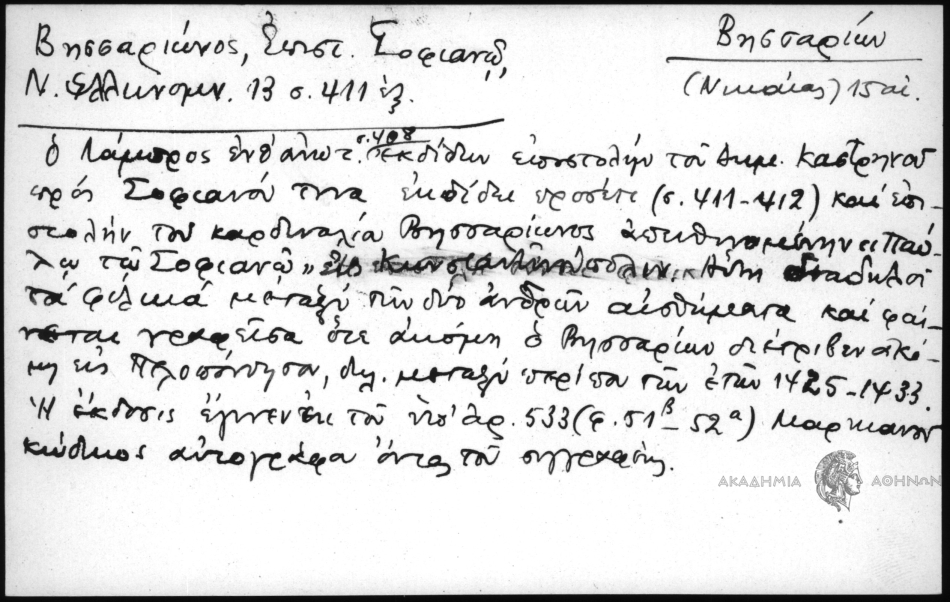 Βησσαρίωνος, Ἐπιστ. Σοφιανῷ,
Ν. Ἑλληνομν. 13 σ. 411 ἑξ.
Βησσαρίων
(Νικαίας) 15 αἰ.
σ. 408
ὁ Λάμπρος ἐνθ' ἀνωτ. ἐκδίδων ἐπιστολὴν τοῦ Δημ. Καστρηνοῦ
πρὸς Σοφιανόν τινα ἐκδίδει προσέτι (σ. 411-412) καὶ ἐπι-
στολὴν τοῦ καρδιναλίου Βησσαρίωνος ἀπευθυνομένην εἰς Παύ-
λῳ τῷ Σοφιανῷ "εἰς Κωνσταντινούπολιν". Αὕτη διαδηλοῖ
τὰ φιλικὰ μεταξὺ τῶν δύο ἀνδρῶν αἰσθήματα καὶ φαί-
νεται γραφεῖσα ὅτε ἀκόμη ὁ Βησσαρίων διέτριβεν ἀκό-
μη εἰς Πελοπόννησον, δηλ. μεταξὺ περίπου τῶν ἐτῶν 1425-1433.
Ἡ ἔκδοσις ἔγινεν ἐκ τοῦ ὑπ' ἀρ. 533 (φ. 51β - 52α) Μαρκιανοῦ
κώδικος αὐτογράφου ὄντος τοῦ συγγραφέως.
ΑΚΑΔΗΜΙΑ ΑΘΗΝΩΝ